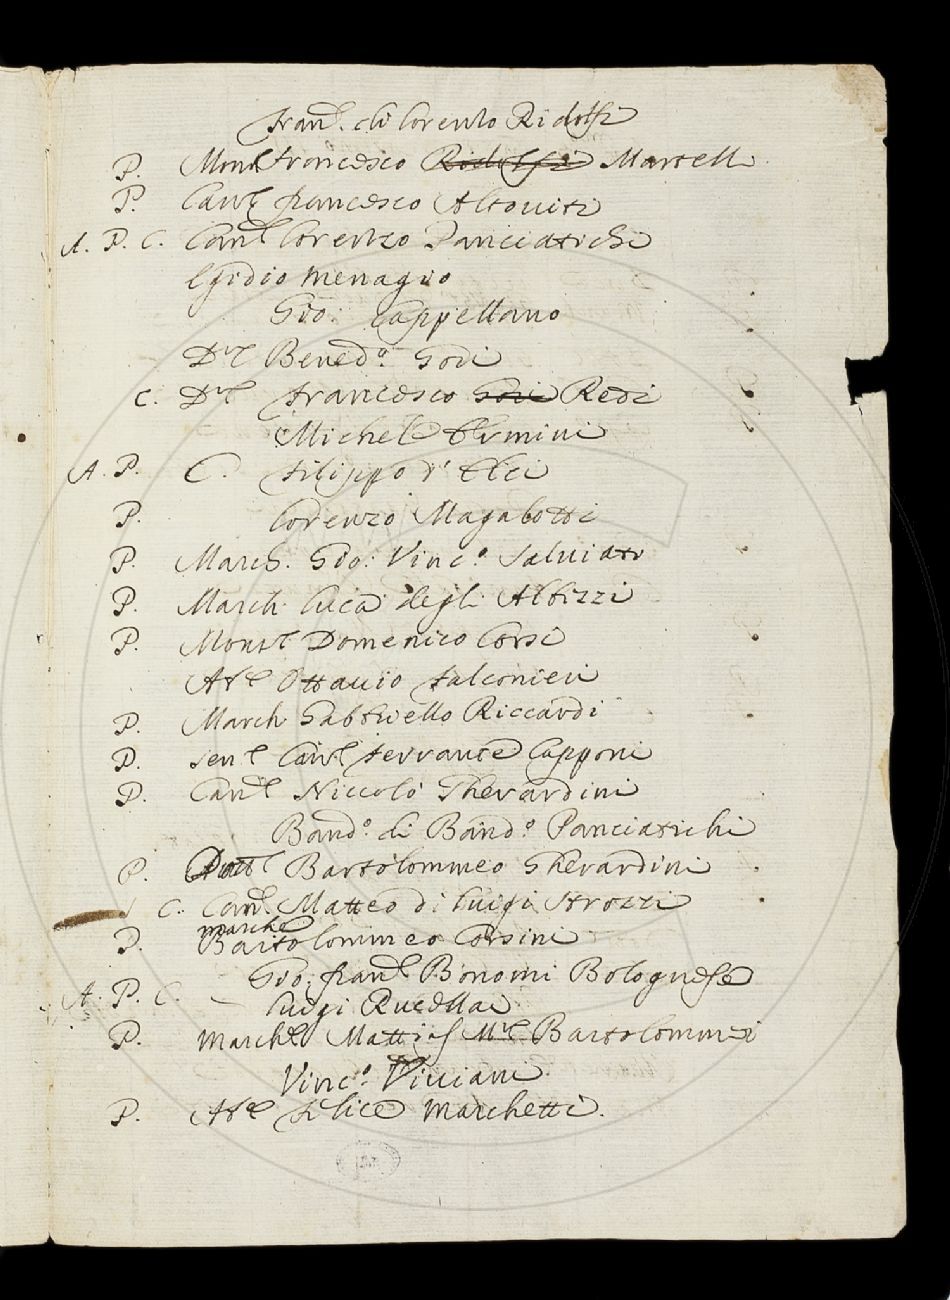 Fran.º di Lorenzo Ridolfi
P. Mons.r Francesco Ridolfi Martelli
P. Cav.r Francesco Altoviti
A. P. C. Can.o Lorenzo Panciatichi
Egidio Menagio
Gio: Cappellano
D.r Bened.º Gori
C. D.r Francesco Gori Redi
Michel Ermini
A. P. C. Filippo d'Elci
P. Lorenzo Magalotti
P. March. Gio: Vinc.º Salviati
P. March. Luca degli Albizzi
P. Mons.r Domenico Corsi
Ab.e Ottavio Falconieri
P. March. Gabbriello Riccardi
P. Sen.r Cav.r Ferrante Capponi
P. Can.o Niccolò Gherardini
Band.º di Band.º Panciatichi
P. Bartolommeo Gherardini
C. Can.o Matteo di Luigi Strozzi
marche
P. Bartolommeo Corsini
Gio: Fran.o Bonomi Bolognese
A. P. C. Luigi Rucellai
P. March.e Mattias M.a Bartolommei
Vinc.º Viviani
P. Ab.e Felice Marchetti.